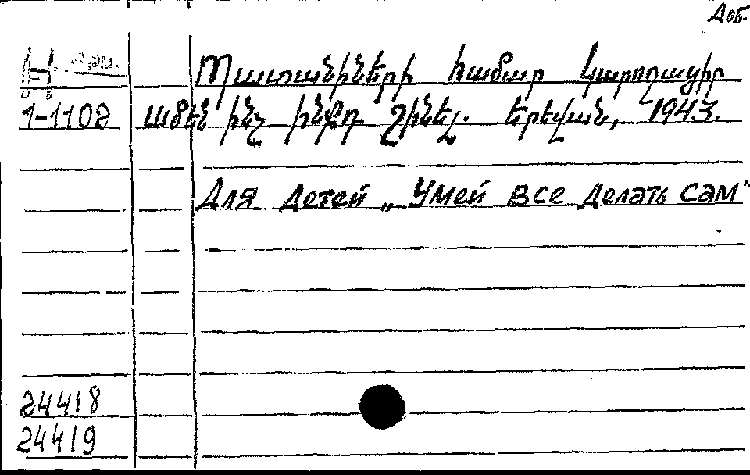 Доб.
Պատանիների համար կարողացիր
1-1108 ամեն ինչ ինքդ շինել. Երեվան, 1943.
Для детей „Умей все делать сам"
24418
24419